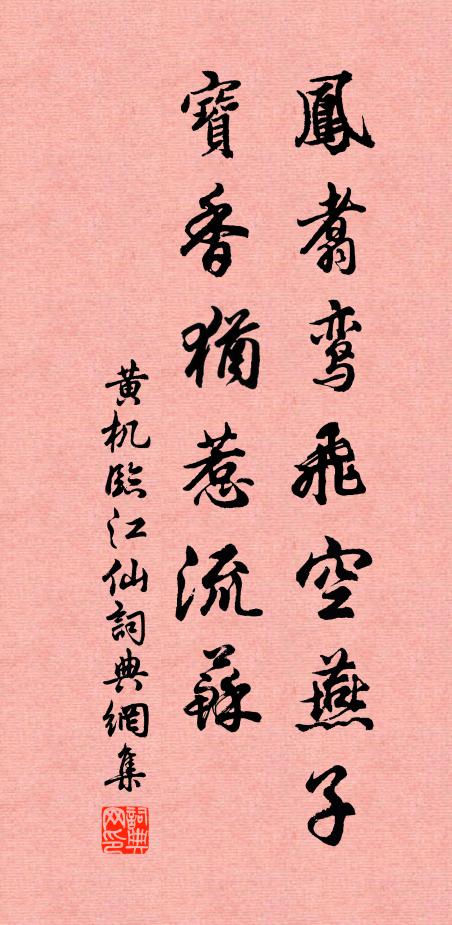 鳳翥鸾飛空燕子
寶香猶惹流蘇
黄机臨江仙詞典網集
詞典网印